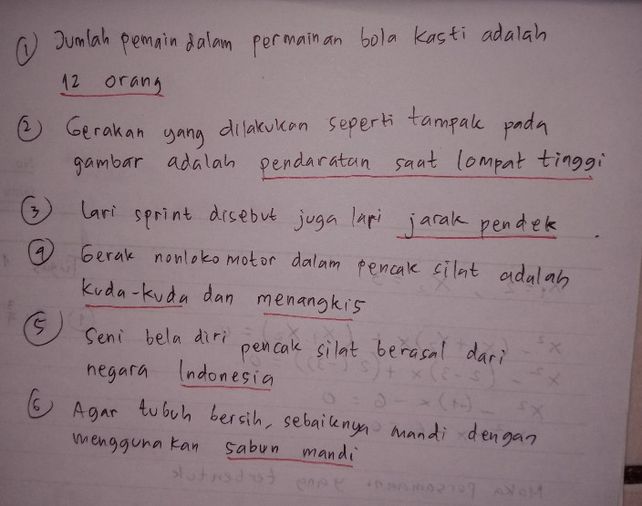 ① Jumlah pemain dalam permainan bola kasti adalah
12 orang
② Gerakan yang dilakukan seperti tampak pada
gambar adalah pendaratan saat lompat tinggi
③ lari sprint disebut juga lari jarak pendek.
④ Gerak nonlokomotor dalam pencak silat adalah
kuda-kuda dan menangkis
⑤ Seni bela diri pencak silat berasal dari
negara Indonesia
⑥ Agar tubuh bersih, sebaiknya mandi dengan
menggunakan sabun mandi